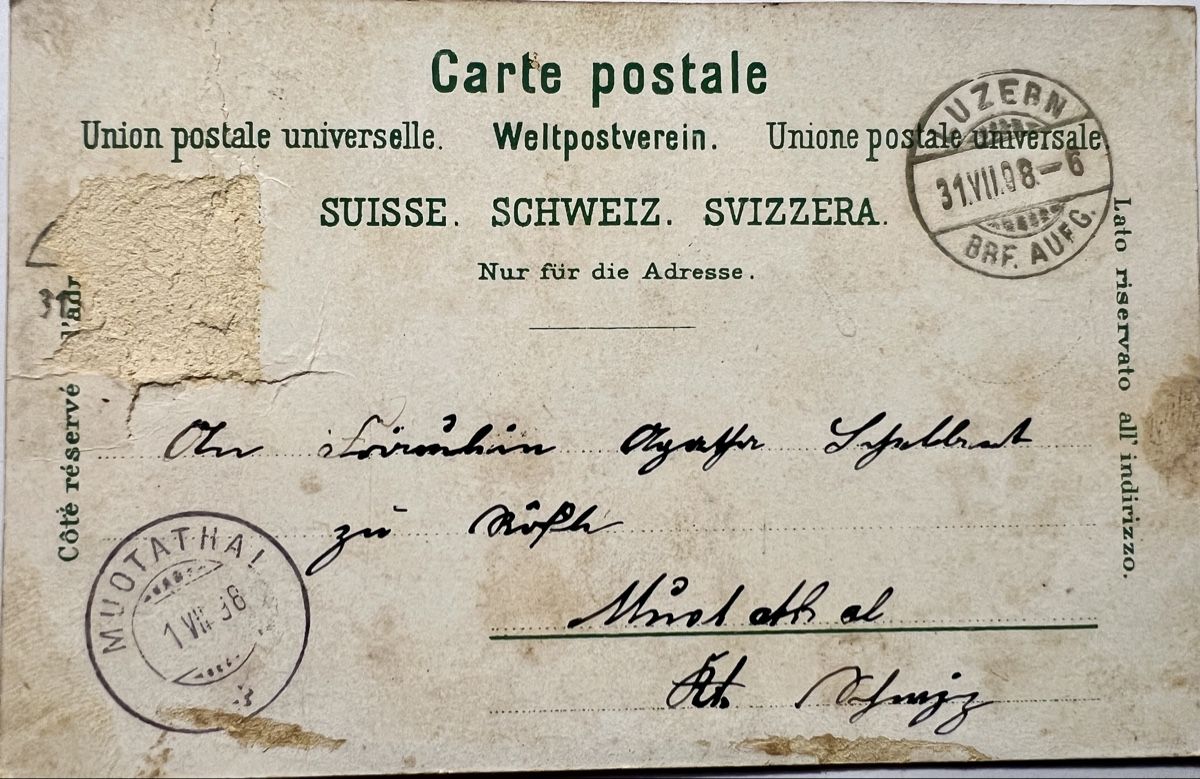 Carte postale
Union postale universelle. Weltpostverein. Unione postale universale
SUISSE. SCHWEIZ. SVIZZERA.
Nur für die Adresse.
LUZERN
31.VII.98.–6
BRF. AUFG.
Côté réservé
l'adr
31
Lato riservato all' indirizzo.
An Fräulein Agatha Schelbert
zu Rößli
Muotathal
Kt. Schwyz
MUOTATHAL
1 VII 98